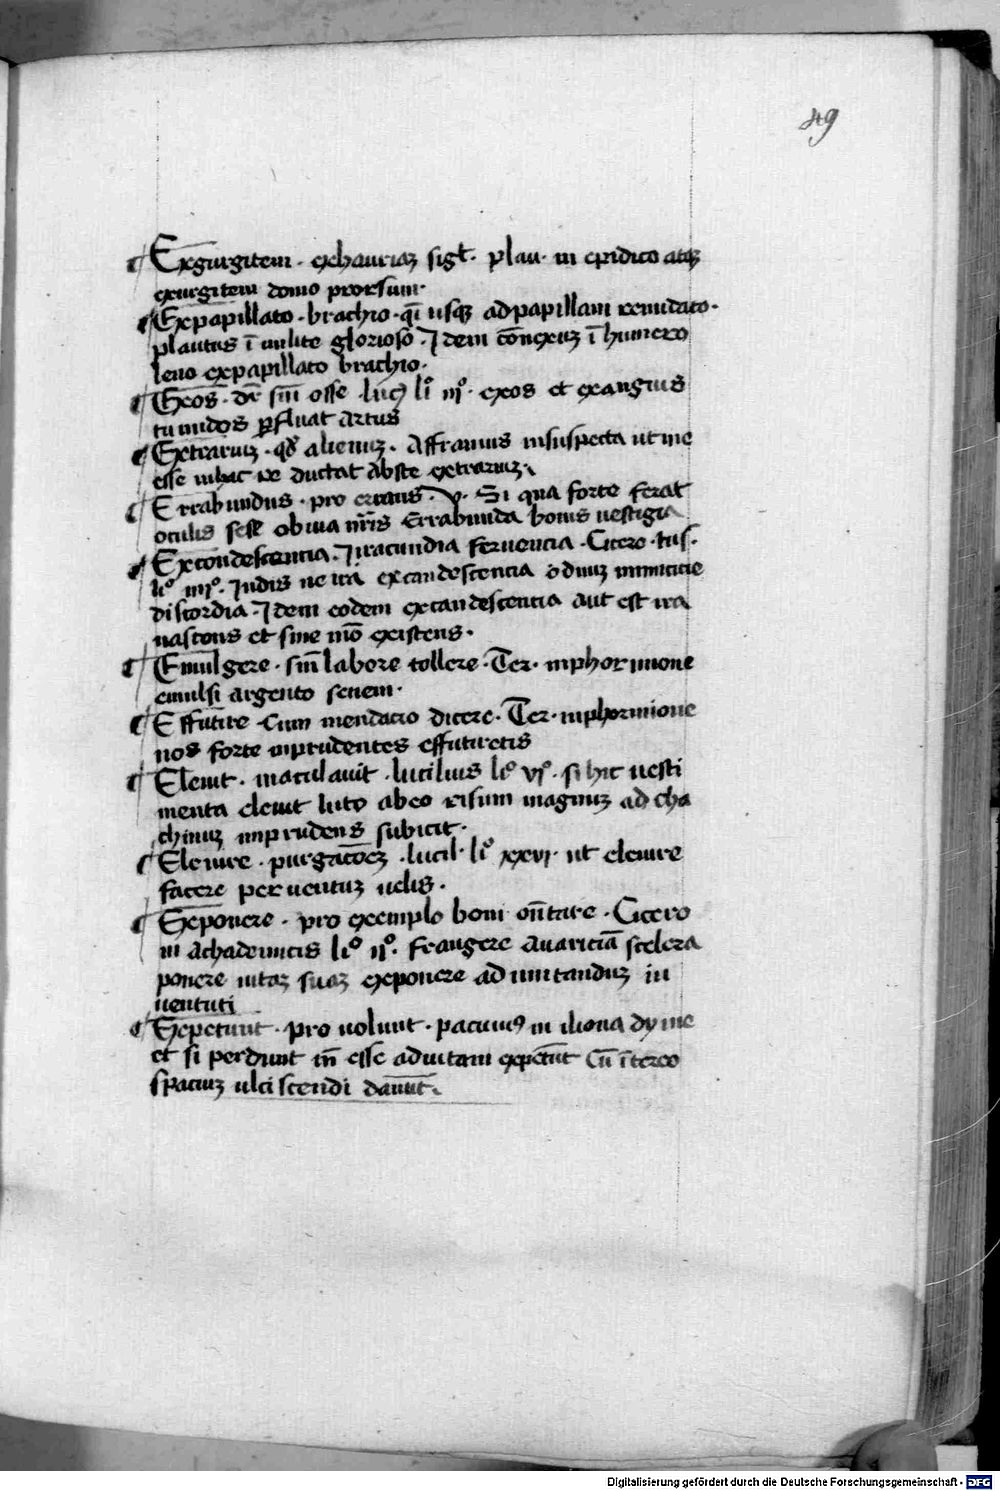 49
¶ Exgurgitem · exhauriaʒ sigt̄ · plau · in epidico atqʒ
exurgitem domo prorsum ·
¶ Expapillato · brachio · qͥ usqʒ ad papillam renudato ·
plautus ī milite glorioso · Idem cōnexuʒ ī humero
leuo expapillato brachio ·
¶ Exos · sin̄ osse · lucꝰ liͦ iiiͦ · exos et exanguis
tumidos ꝑfluat artus
¶ Extrariuʒ · qd̛ alienuʒ · Affranius insuspecta ut me
esse inhac re ductat abste extrariuʒ ·
¶ Errabundus · pro errans · v · Si qua forte ferat
oculis sese obuia nr̄is Errabunda bouis uestigia
¶ Excondescencia · Iiracundia feruencia · Cicero · tus ·
liͦ iiiiͦ · Indis ne ira excandescencia odiuʒ inimicicie
discordia · Idem eodem excandescentia aut est ira
nascens et sine mō existens ·
¶ Emulgere · sin̄ labore tollere · Ter · inphormione
emulsi argento senem ·
¶ Effutire · cum mendacio dicere · Ter · inphormione
nos forte inprudentes effutiretis
¶ Eleuit · maculauit · lucilius liͦ vjͦ · si hic uesti
menta eleuit luto abeo risum magnuʒ ad cha
chinuʒ inprudens subicit ·
¶ Eleuire · purgacōeʒ · lucil · liͦ xxvi · ut eleuire
facere per uentuʒ uelis ·
¶ Exponere · pro exemplo boni on̄tare · Cicero
in achademicis liͦ iiͦ · frangere auariciā scelera
ponere uitaʒ suaʒ exponere ad imitanduʒ iu
uentuti
¶ Expetunt · pro uolunt · pacuuiꝰ in iliona dy me
et si perdunt in̄ esse aduitam expetūt cū ītereo
spaciuʒ ulciscendi dauut ·
Digitalisierung gefördert durch die Deutsche Forschungsgemeinschaft - DFG